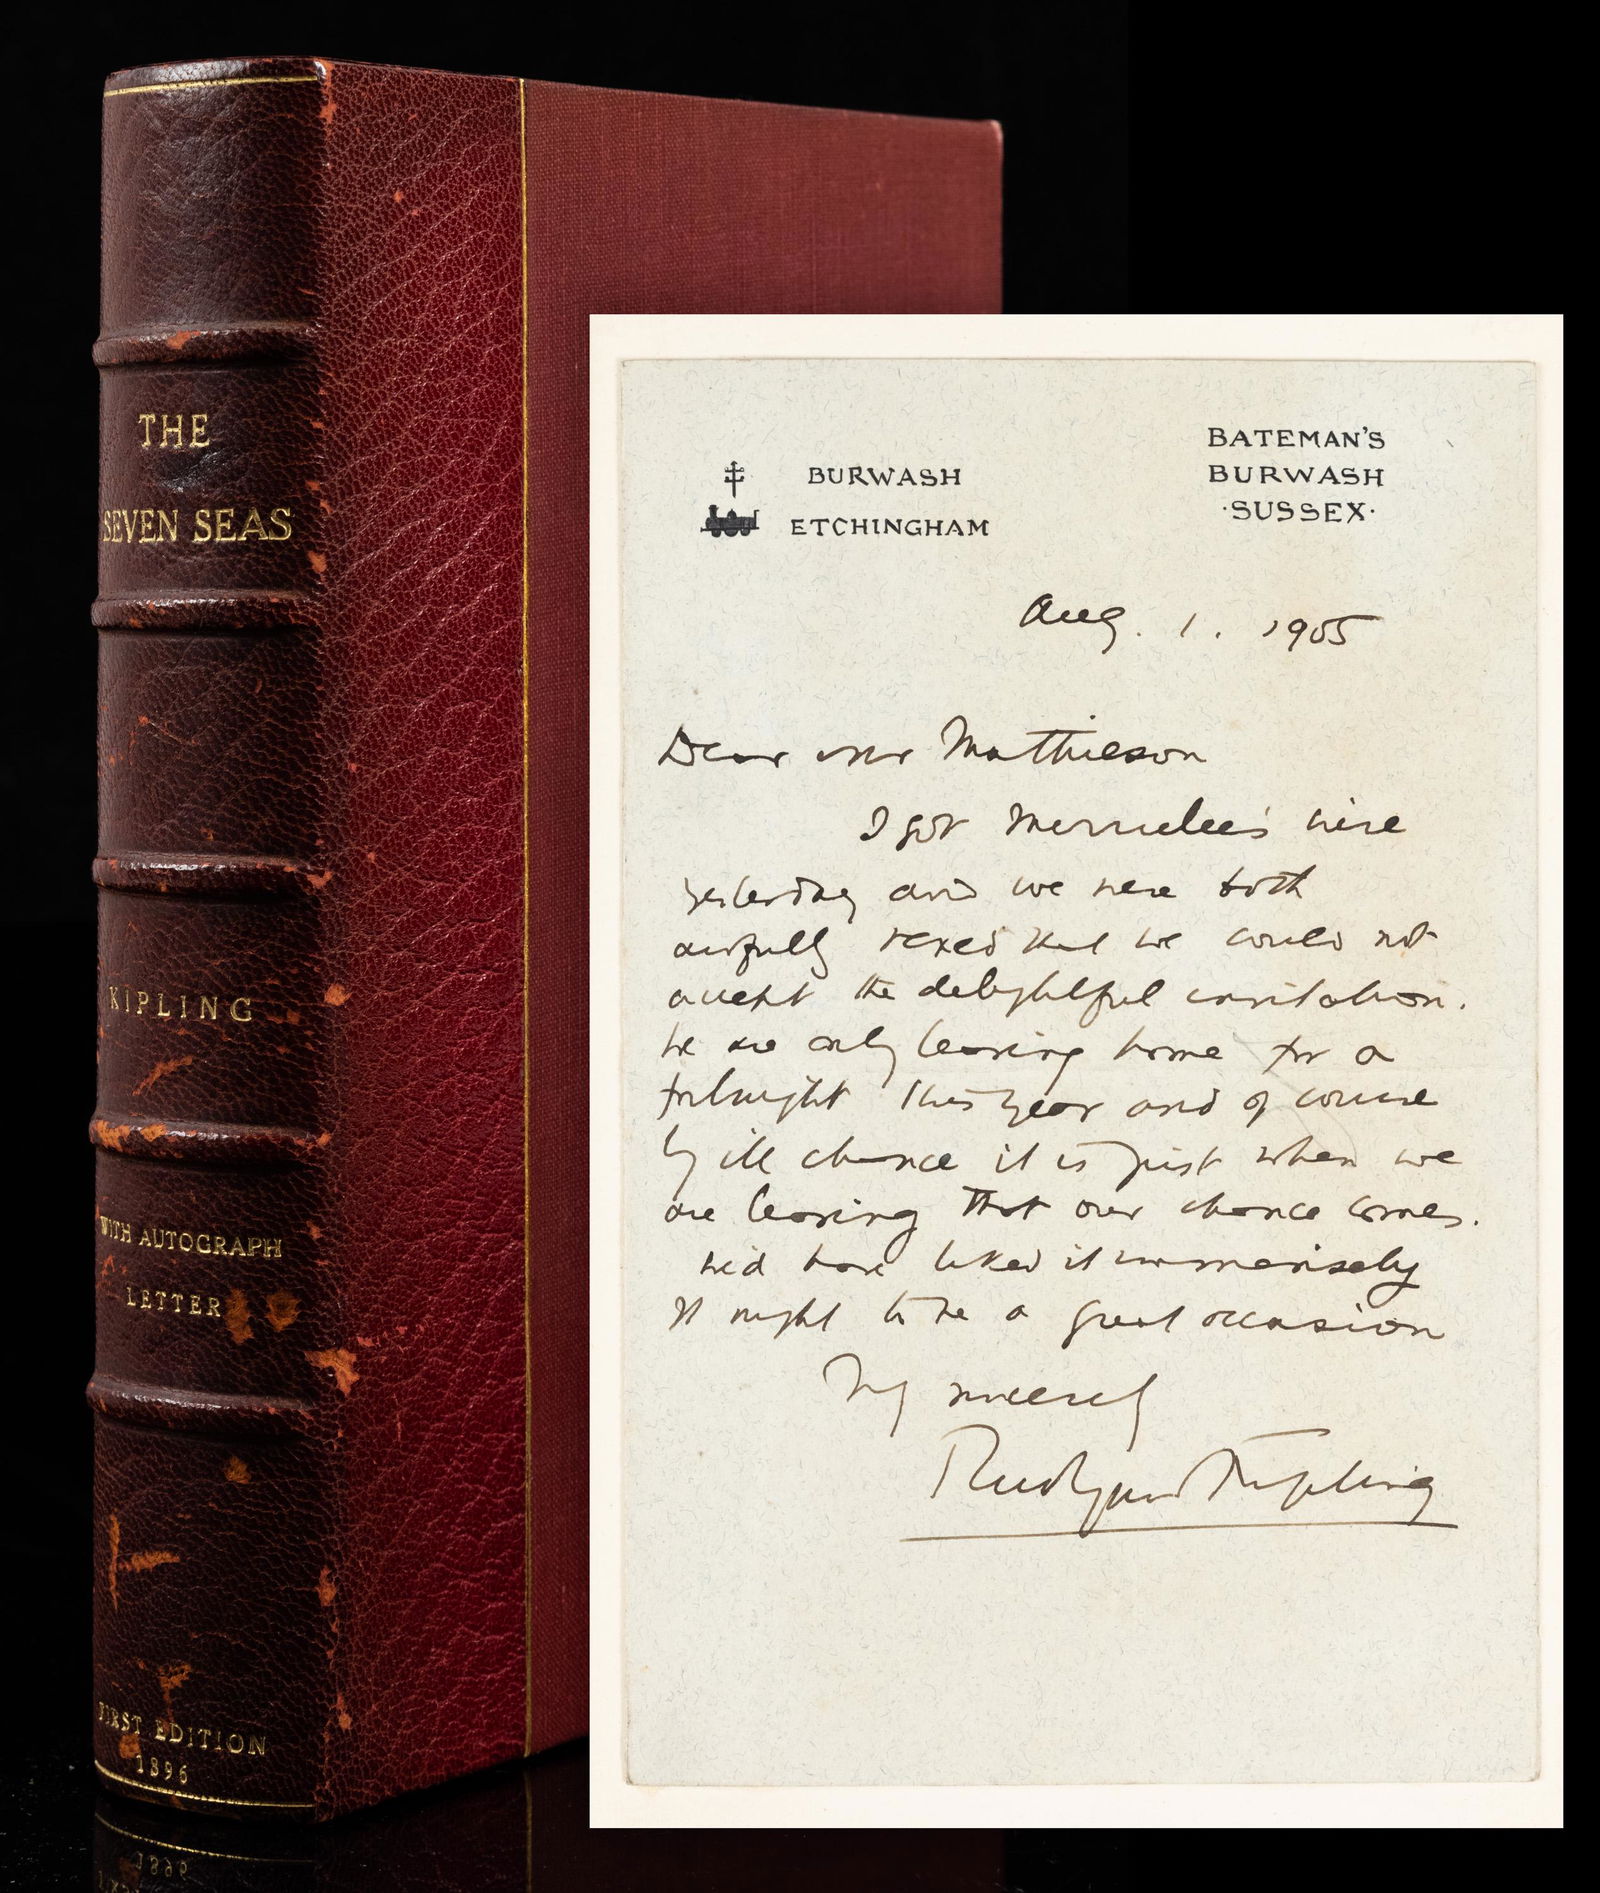 THE
SEVEN SEAS
KIPLING
WITH AUTOGRAPH
LETTER
FIRST EDITION
1896
BURWASH
ETCHINGHAM
BATEMAN'S
BURWASH
·SUSSEX·
Aug. 1. 1905
Dear Mr Matthieson
I got wire
yesterday and we were both
awfully vexed that we could not
accept the delightful invitation.
We are only leaving home for a
fortnight this year and of course
by ill chance it is just when we
are leaving that our chance comes.
We'd have liked it immensely
It ought to be a great occasion
Very sincerely
Rudyard Kipling